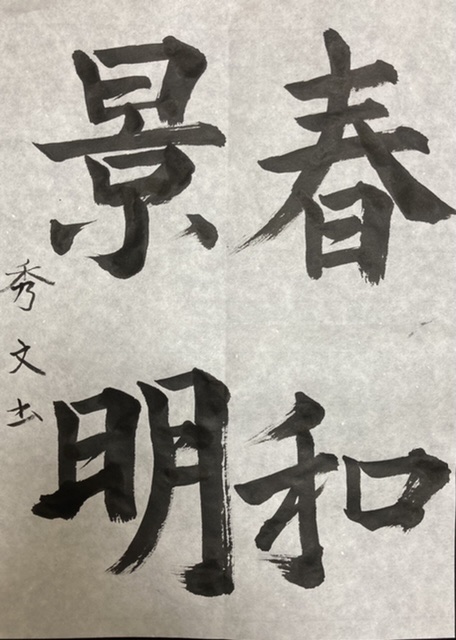 春和
景明
秀文